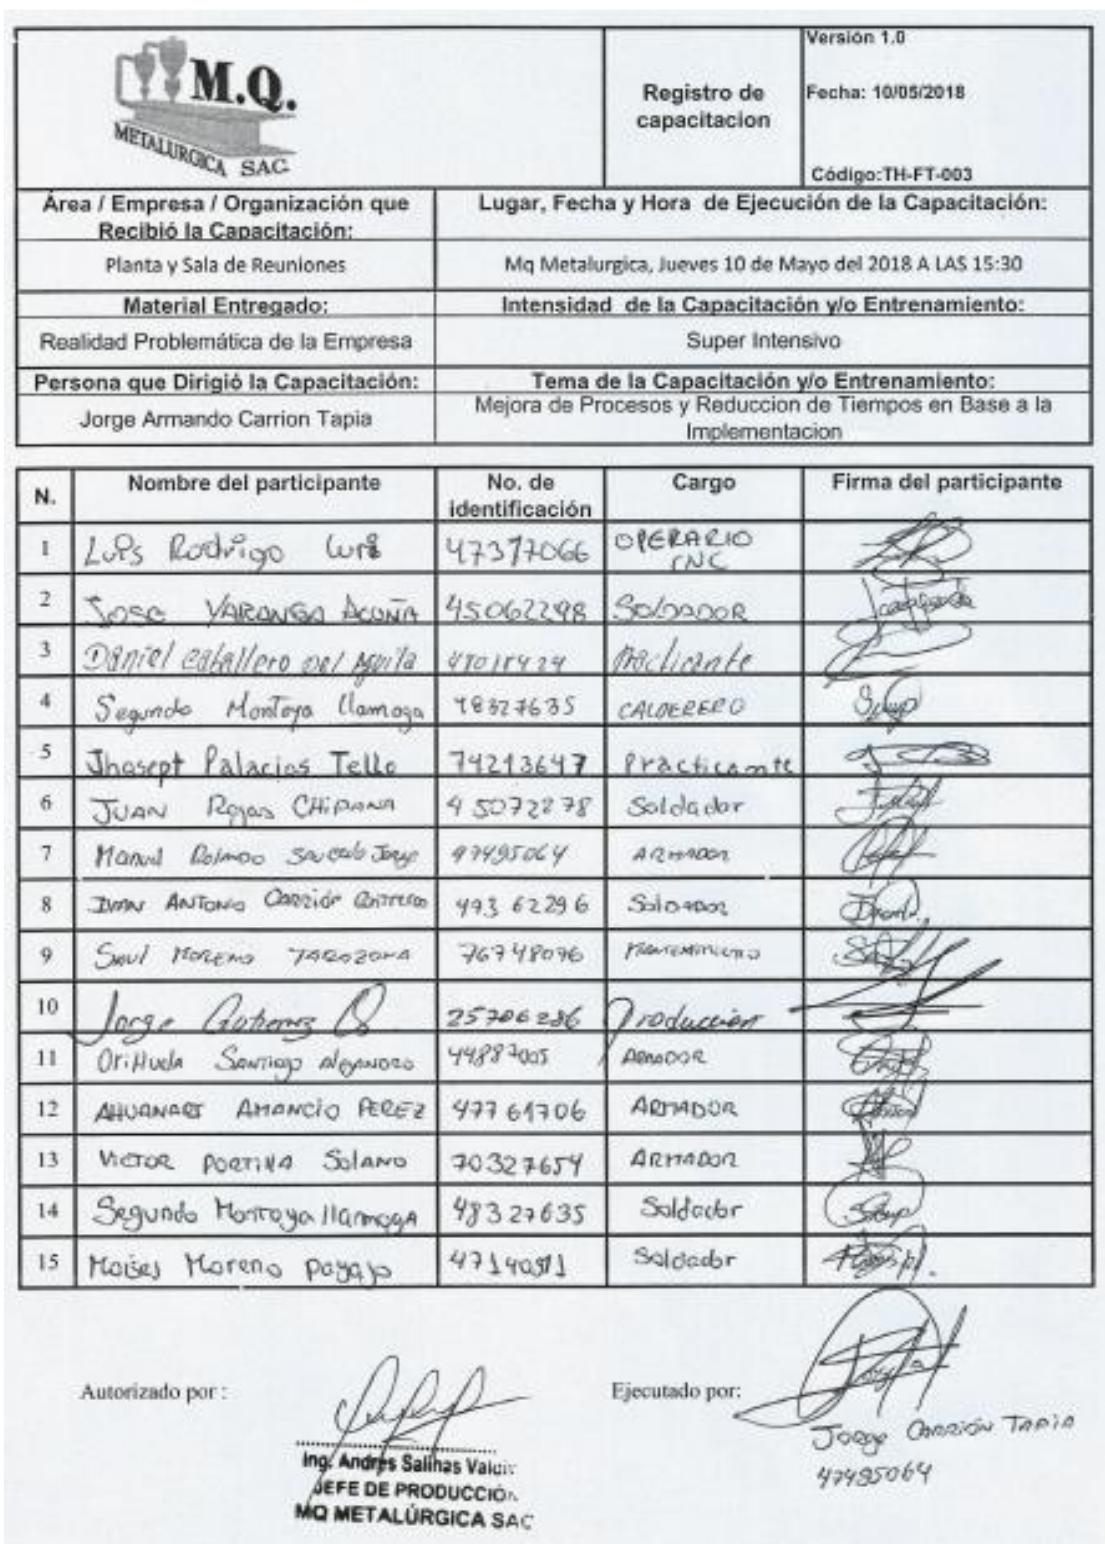 M.Q.
METALURGICA SAC
Registro de
capacitacion
Versión 1.0
Fecha: 10/05/2018
Código:TH-FT-003
Área / Empresa / Organización que
Recibió la Capacitación:
Lugar, Fecha y Hora de Ejecución de la Capacitación:
Planta y Sala de Reuniones
Mq Metalurgica, Jueves 10 de Mayo del 2018 A LAS 15:30
Material Entregado:
Intensidad de la Capacitación y/o Entrenamiento:
Realidad Problemática de la Empresa
Super Intensivo
Persona que Dirigió la Capacitación:
Tema de la Capacitación y/o Entrenamiento:
Jorge Armando Carrion Tapia
Mejora de Procesos y Reduccion de Tiempos en Base a la
Implementacion
N. Nombre del participante No. de identificación Cargo Firma del participante
1 Luis Rodrigo 47377066 OPERARIO CNC
2 Jose ACUÑA 45062298 SOLDADOR
3 Daniel caballero del Aguila Practicante
4 Segundo Montoya llamoga 48327635 CALDERERO
5 Jhosept Palacios Tello 74213647 Practicante
6 JUAN Rojas CHIPANA 45072278 Soldador
7 Manuel 47495064 ARMADOR
8 IVAN ANTONIO Carrión 493 62296 Soldador
9 Saul MORENO TARAZONA 76748096 MANTENIMIENTO
10 Jorge Gutierrez 25706286 Producción
11 OriHuela Santiago Alejandro 44887005 ARMADOR
12 AHUANARI AMANCIO PEREZ 47761706 ARMADOR
13 VICTOR PORTILLA SOLANO 70327654 ARMADOR
14 Segundo Montoya llamoga 48327635 Soldador
15 Moises Moreno payajo Soldador
Autorizado por :
Ejecutado por:
Ing. Andrés Salinas
JEFE DE PRODUCCIÓN
MQ METALÚRGICA SAC
Jorge CARRIÓN TAPIA
47495064